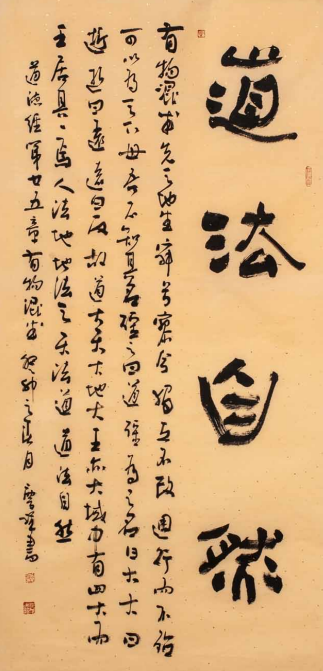 道法自然
有物混成先天地生寂兮寥兮獨立不改周行而不殆
可以為天下母吾不知其名強之曰道強為之名曰大大曰
逝逝曰遠遠曰反故道大天大地大王亦大域中有四大而
王居其一焉人法地地法天天法道道法自然
道德經第廿五章有物混成